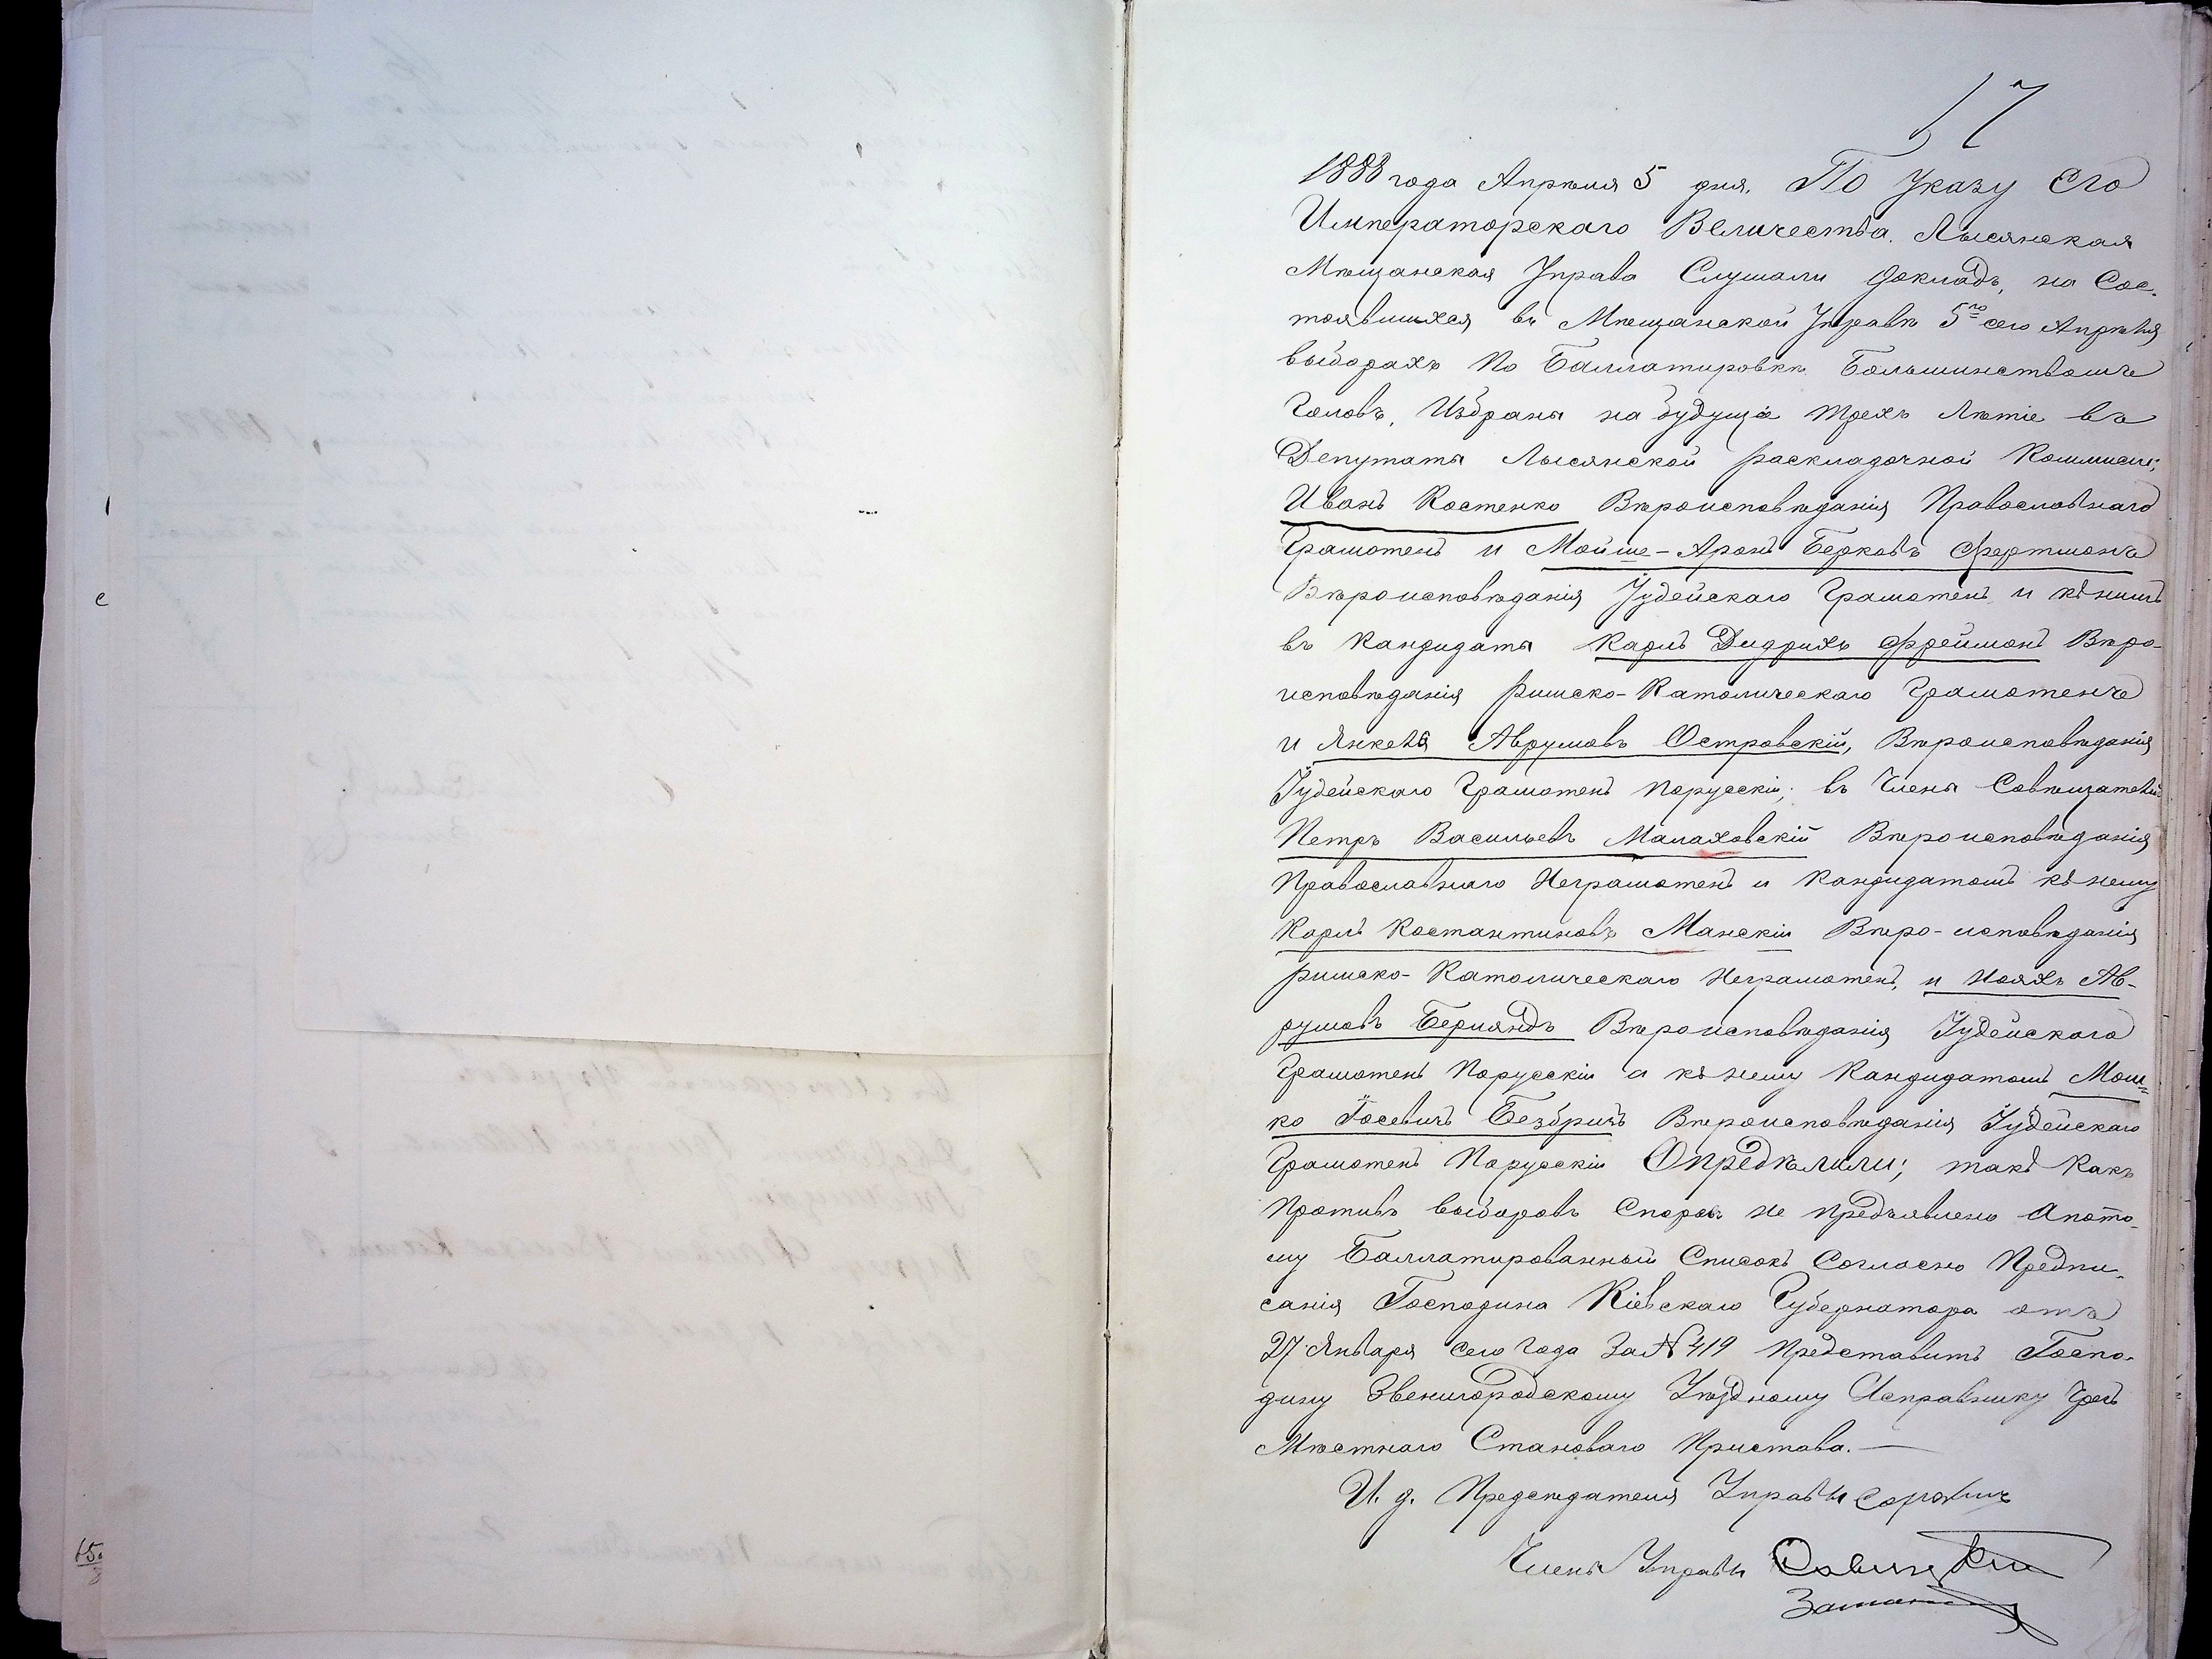 17
1888 года Апрѣля 5 дня. По Указу Его
Императорскаго Величества. Лысянская
Мѣщанская Управа Слушали докладъ, на Сос-
тоявшихся въ Мѣщанской Управѣ 5го сего Апрѣля
выборахъ По Баллатировкѣ Большинствомъ
Головъ, Избраны на будущіе трехъ Лѣтіе въ
Депутаты Лысянской раскладочной Коммисіи;
Иванъ Костенко Вѣроисповѣданія Православнаго
Грамотенъ и Мойше-Аронъ Берковъ Фертманъ
Вѣроисповѣданія Іудейскаго Грамотенъ и кѣнимъ
въ Кандидаты Карлъ Дидрихъ Фрейманъ Вѣро-
исповѣданія римско-Католическаго Грамотенъ
и Янкель Аврумовъ Островскій, Вѣроисповѣданія
Іудейскаго Грамотенъ Порусскіи; въ Члены
Петръ Васильевъ Малаховскій Вѣроисповѣданія
Православнаго Неграмотенъ и Кандидатомъ кънему
Карлъ Костантиновъ Манскіи Вѣро-исповѣданія
римско-Католическаго Неграмотенъ, и Нояхъ Ав-
румовъ Берляндъ Вѣроисповѣданія Іудейскаго
Грамотенъ Порусскіи а кънему Кандидатомъ Мош=
ко Іосевичъ Безбричъ Вѣроисповѣданія Іудейскаго
Грамотенъ Порусскіи Опредѣлили; такъ Какъ
Противъ выборовъ Споровъ не предъявлено Апото-
му Баллатированный Списокъ Согласно Предпи-
санія Господина Кіевскаго Губернатора отъ
27 Января Сего Года За № 419 Представить Госпо-
дину Звенигородскому Уѣздному Исправнику Чрезъ
Мѣстнаго Становаго Пристава.—
И. д. Предсѣдателя Управы
Члены Управы